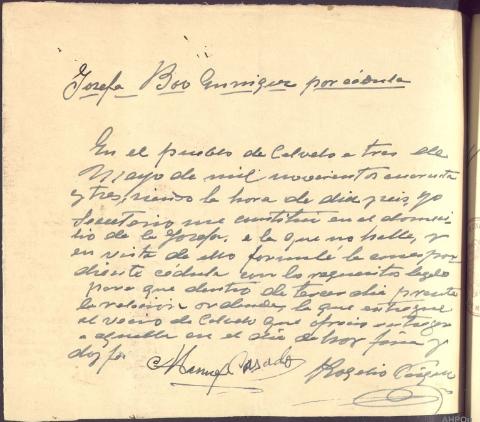 Josefa Boo Enriquez por cédula
En el pueblo de Calvelo a tres de
Mayo de mil novecientos cuarenta
y tres, siendo la hora de diez seis yo
Secretario me constitui en el domici
lio de la Josefa, a la que no halle, y
en vista de ello formule la corres pon
diente cédula con los requisitos legales
para que dentro de tercer dia presente
la relacion ordenada, la que entregue
al vecino de Calvelo que ofrecio entregar
a aquella en el dia de hoy firma y
doy fe
Manuel Casado Rogelio
AHPOu